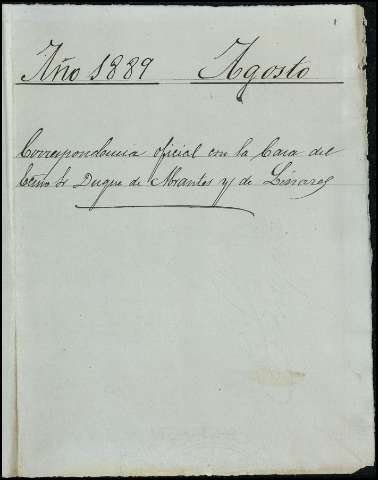 1
Año 1889 Agosto
Correspondencia oficial con la Casa del
Excmo Sr Duque de Abrantes y de Linares